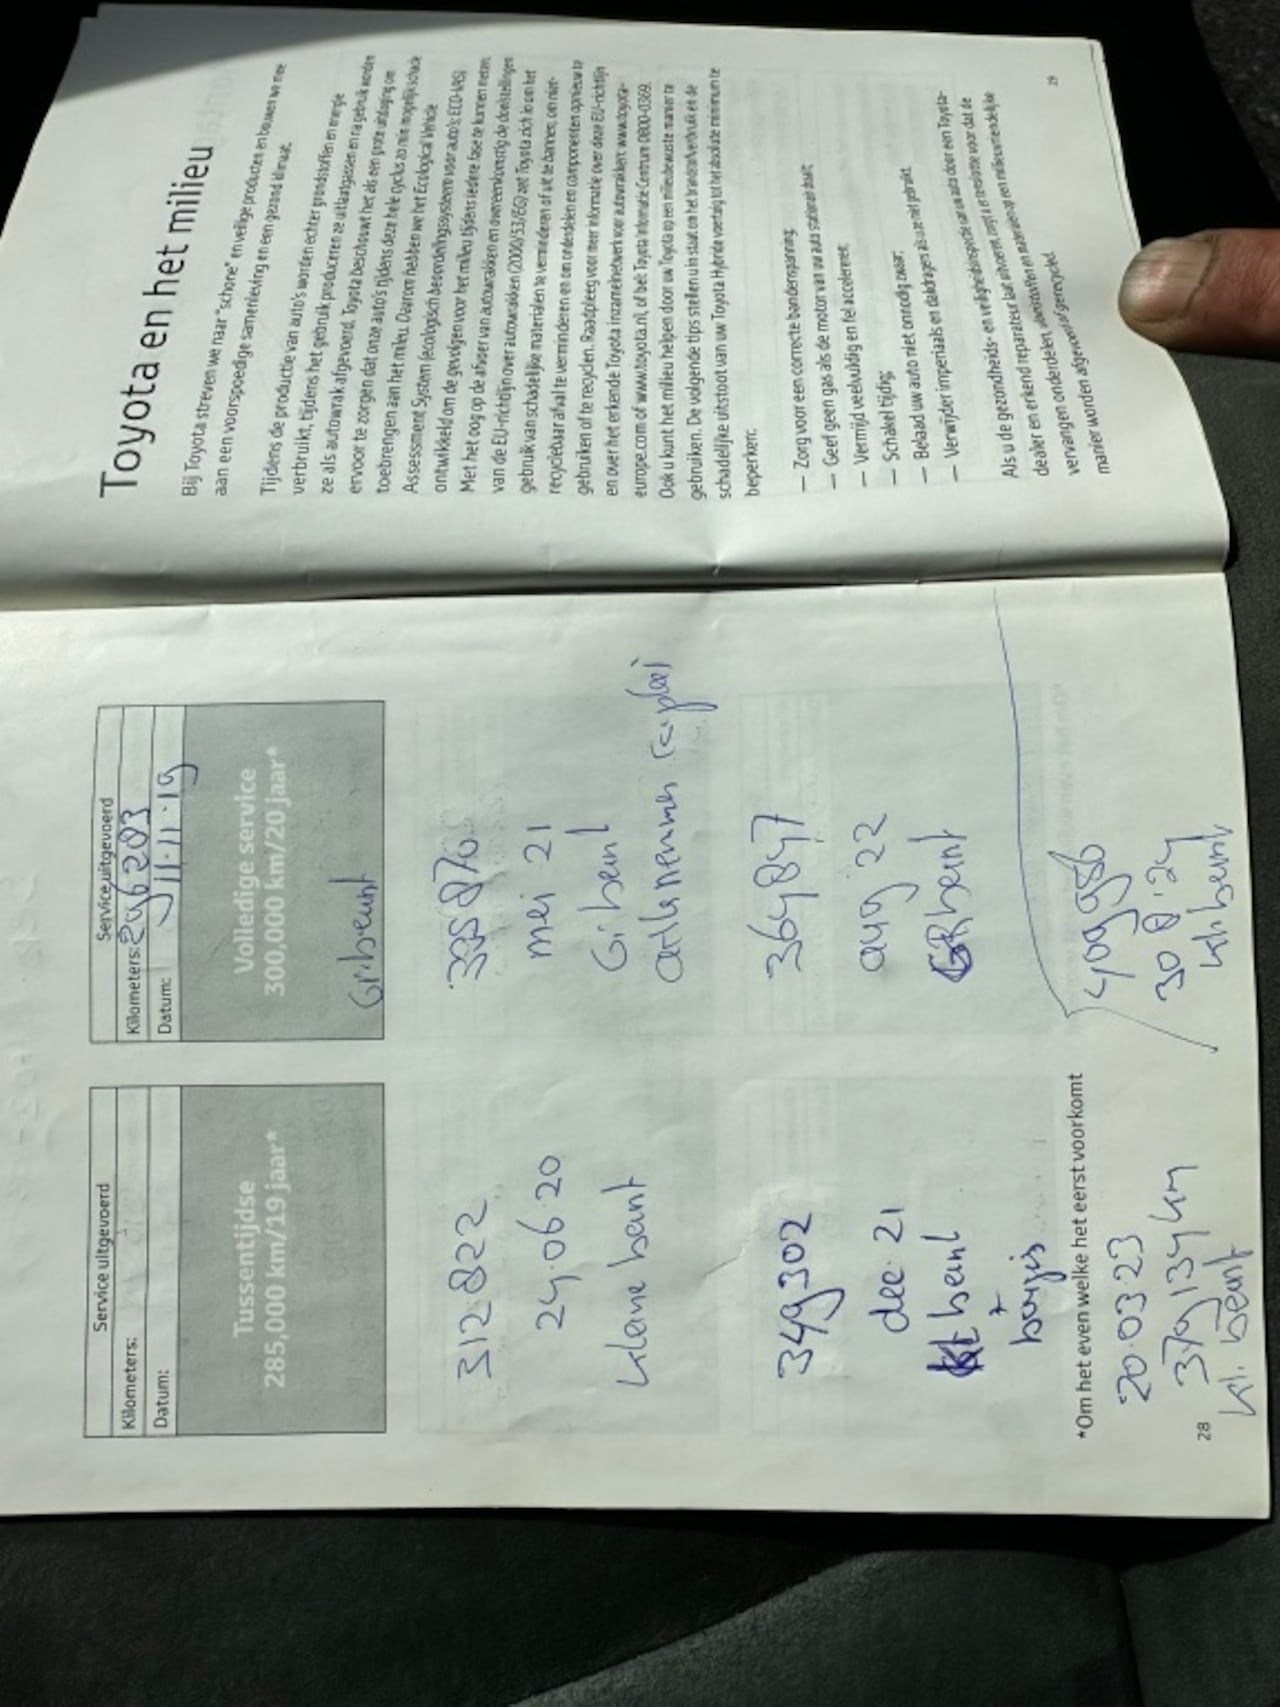 Service uitgevoerd
Kilometers:
Datum:
Tussentijdse
285,000 km/19 jaar*
Service uitgevoerd
Kilometers: 296203
Datum: 11.11.19
Volledige service
300,000 km/20 jaar*
Gr. beurt
312 822
24.06.20
kleine beurt
335870
mei 21
Gr. beurt
349302
dec. 21
beurt
+
364847
aug 22
GR beurt
*Om het even welke het eerst voorkomt
20.03.23
379134 km
kl. beurt
409986
30 8.24
kl. beurt
28
Toyota en het milieu
Bij Toyota streven we naar "schone" en veilige producten en bouwen we mee
aan een voorspoedige samenleving en een gezond klimaat.
Tijdens de productie van auto's worden echter grondstoffen en energie
verbruikt, tijdens het gebruik produceren ze uitlaatgassen en na gebruik worden
ze als autowrak afgevoerd. Toyota beschouwt het als een grote uitdaging om
ervoor te zorgen dat onze auto's tijdens deze hele cyclus zo min mogelijk schade
toebrengen aan het milieu. Daarom hebben we het Ecological Vehicle
Assessment System (ecologisch beoordelingssysteem voor auto's: ECO-VAS)
ontwikkeld om de gevolgen voor het milieu tijdens iedere fase te kunnen meten.
Met het oog op de afvoer van autowrakken en overeenkomstig de doelstellingen
van de EU-richtlijn over autowrakken (2000/53/EG) zet Toyota zich in om het
gebruik van schadelijke materialen te verminderen of uit te bannen, om niet-
recyclebaar afval te verminderen en om onderdelen en componenten opnieuw te
gebruiken of te recyclen. Raadpleeg voor meer informatie over deze EU-richtlijn
en over het erkende Toyota inzamelnetwerk voor autowrakken: www.toyota-
europe.com of www.toyota.nl, of bel: Toyota Informatie Centrum 0800-0369.
Ook u kunt het milieu helpen door uw Toyota op een milieubewuste manier te
gebruiken. De volgende tips stellen u in staat om het brandstofverbruik en de
schadelijke uitstoot van uw Toyota Hybride voertuig tot het absolute minimum te
beperken:
— Zorg voor een correcte bandenspanning;
— Geef geen gas als de motor van uw auto stationair draait;
— Vermijd veelvuldig en fel accelereren;
— Schakel tijdig;
— Belaad uw auto niet onnodig zwaar;
— Verwijder imperiaals en dakdragers als u ze niet gebruikt.
Als u de gezondheids- en veiligheidsinspectie van uw auto door een Toyota-
dealer en erkend reparateur laat uitvoeren, zorgt u er tenslotte voor dat de
vervangen onderdelen, vloeistoffen en materialen op een milieuvriendelijke
manier worden afgevoerd of gerecycled.
29